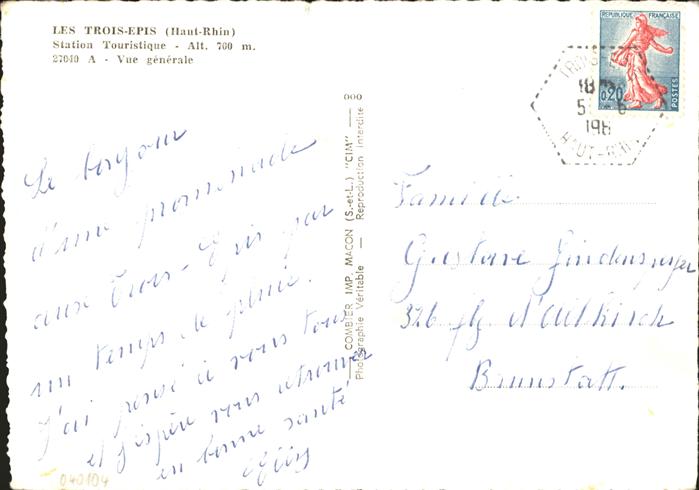 LES TROIS-EPIS (Haut-Rhin)
Station Touristique - Alt. 700 m.
27040 A - Vue générale
RÉPUBLIQUE FRANÇAISE
0,20
POSTES
18
5 6
196
HAUT-RHIN
000
COMBIER IMP. MACON (S.-et-L.) "CIM"
Photographie Véritable — Reproduction interdite
Le bonjour
d'une promenade
aux Trois-Epis par
un temps de pluie.
J'ai pensé à vous tous
et j'espère vous retrouver
en bonne santé
Famille
Gustave
326 fg d'Altkirch
Brunstatt.
040104